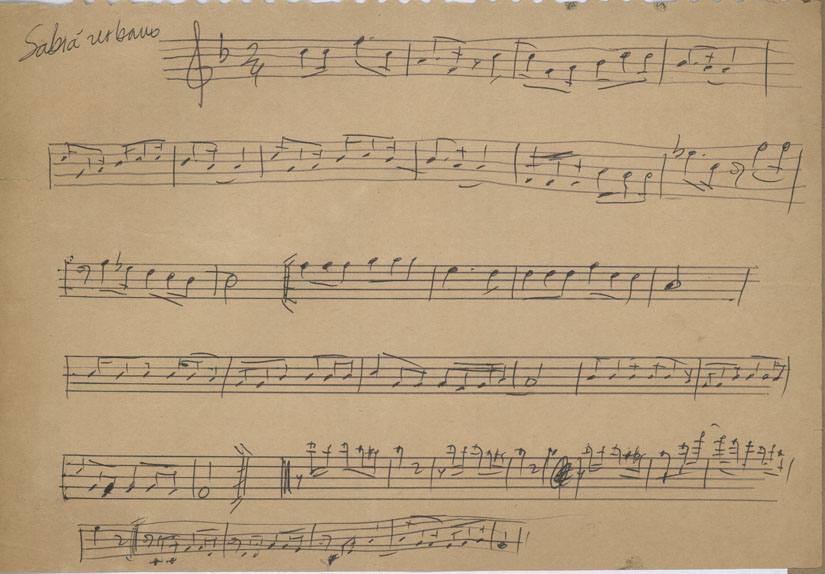 Sabiá urbano